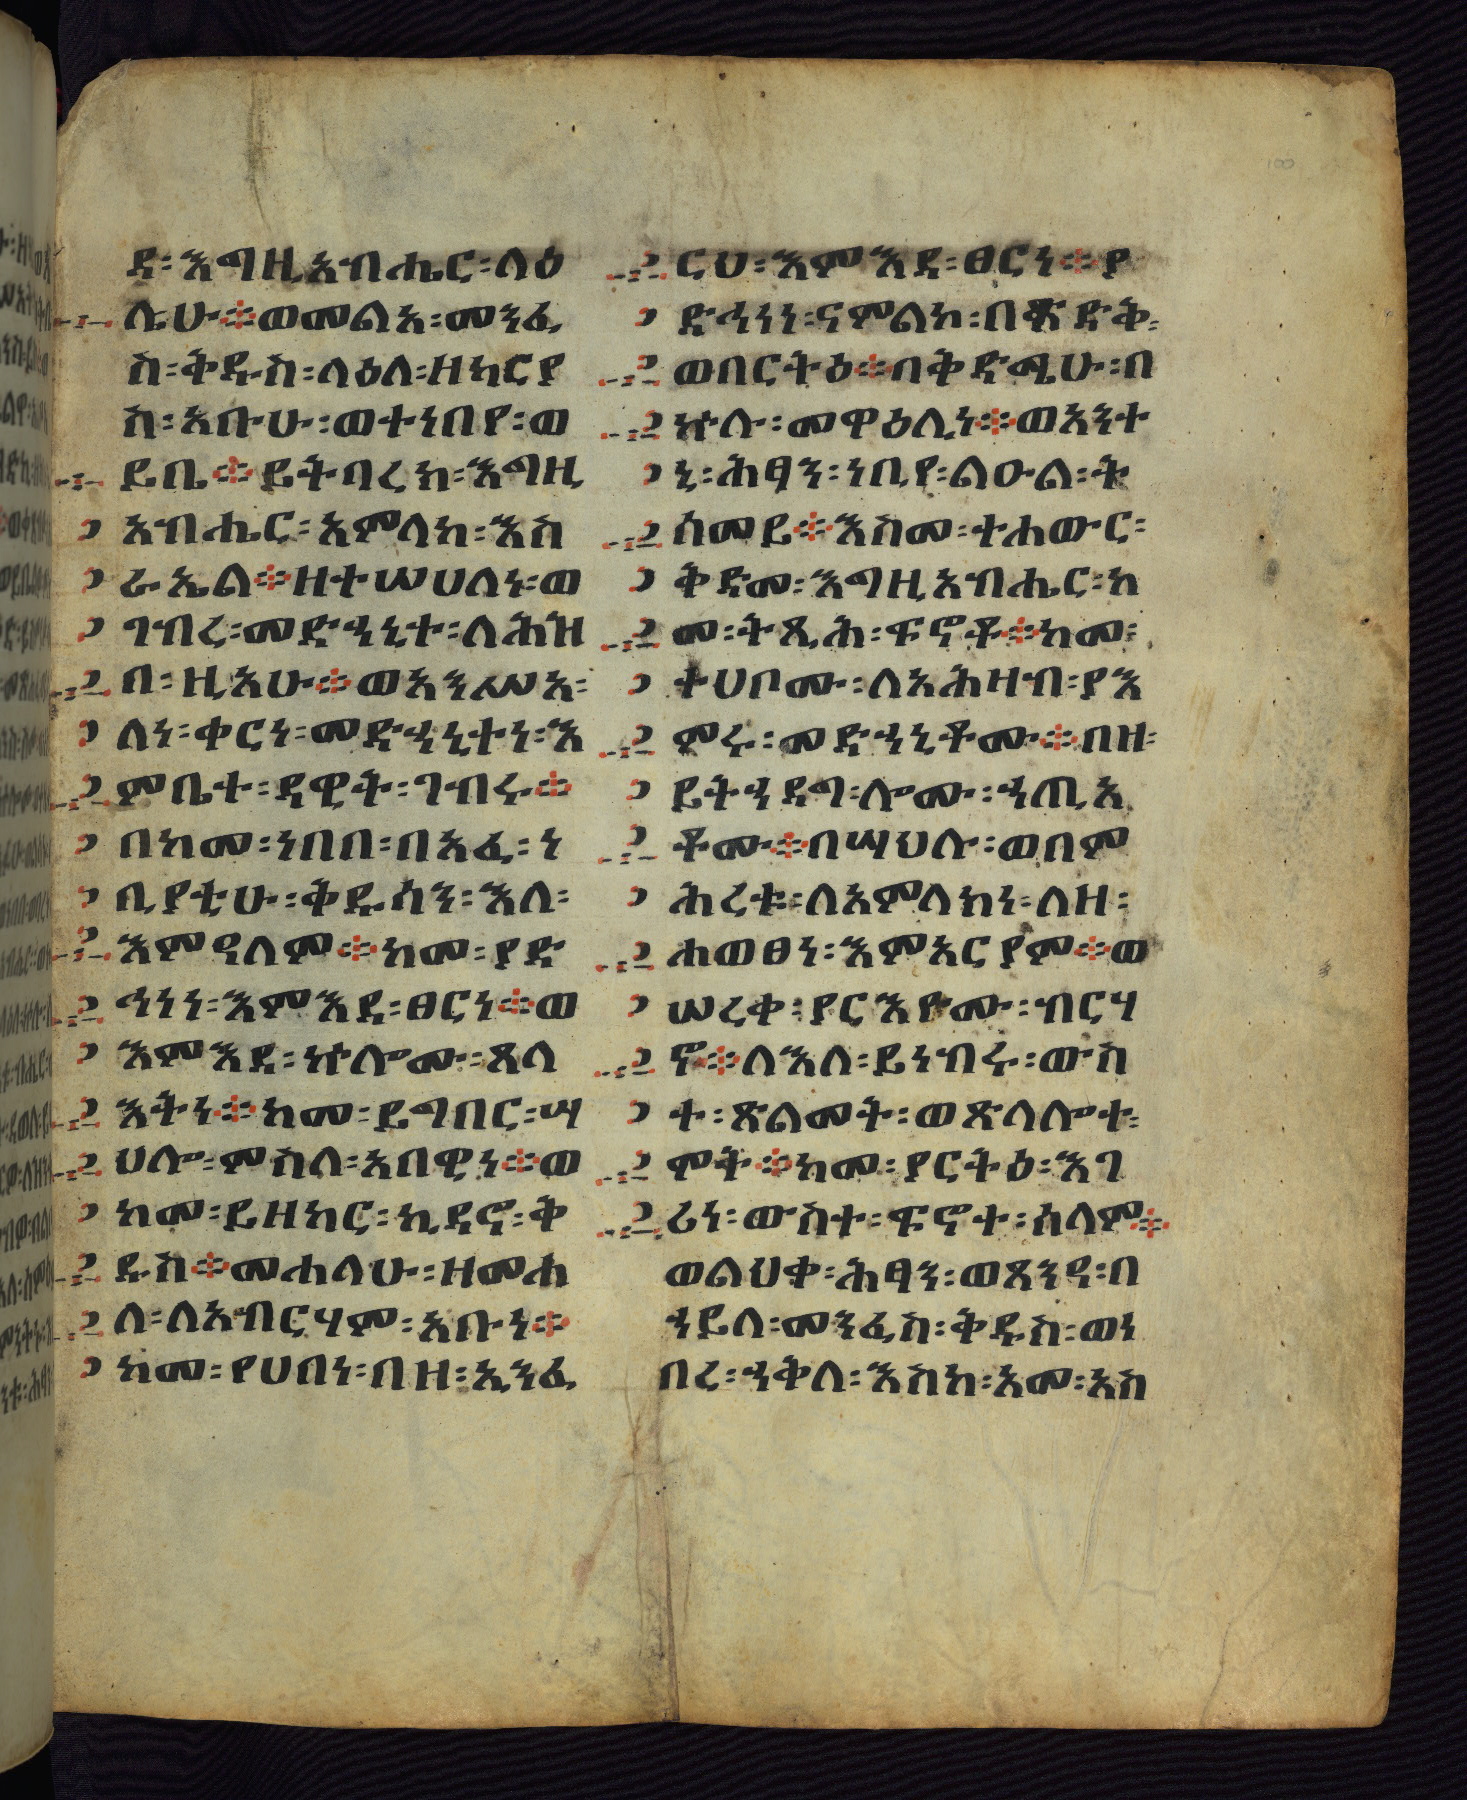 ዳ፡ እግዚአብሔር፡ ላዕ
ሌሁ፨ ወመልአ፡ መንፈ
ስ፡ ቅዱስ፡ ላዕለ፡ ዘካርያ
ስ፡ አቡሁ፡ ወተነበየ፡ ወ
ይቤ፨ ይትባረክ፡ እግዚ
አብሔር፡ አምላክ፡ እስ
ራኤል፨ ዘተሠሀለነ፡ ወ
ገብረ፡ መድኃኒተ፡ ለሕዝ
በ፡ ዚአሁ፨ ወአንሥአ፡
ለነ፡ ቀርነ፡ መድኃኒተነ፡ እ
ምቤተ፡ ዳዊት፡ ገብሩ፨
በከመ፡ ነበበ፡ በአፈ፡ ነ
ቢያቲሁ፡ ቅዱሳን፡ እለ፡
እምዓለም፨ ከመ፡ ያድ
ኅነነ፡ እምእደ፡ ፀርነ፨ ወ
እምእደ፡ ኵሎሙ፡ ጸላ
እትነ፨ ከመ፡ ይግበር፡ ሣ
ህሎ፡ ምስለ፡ አበዊነ፨ ወ
ከመ፡ ይዘከር፡ ኪዳኖ፡ ቅ
ዱስ፨ መሐላሁ፡ ዘመሐ
ለ፡ ለአብርሃም፡ አቡነ፨
ከመ፡ የሀበነ፡ በዘ፡ ኢንፈ
ርህ፡ እምእደ፡ ፀርነ፨ ያ
ድኅነነ፡ ናምልኮ፡ በጽድቅ፡
ወበርትዕ፨ በቅድሜሁ፡ በ
ኵሉ፡ መዋዕሊነ፨ ወአንተ
ኒ፡ ሕፃን፡ ነቢየ፡ ልዑል፡ ት
ሰመይ፨ እስመ፡ ተሐውር፡
ቅድመ፡ እግዚአብሔር፡ ከ
መ፡ ትጺሕ፡ ፍኖቶ፨ ከመ፡
ተሀቦሙ፡ ለአሕዛብ፡ ያእ
ምሩ፡ መድኃኒቶሙ፨ በዘ፡
ይትኃደግ፡ ሎሙ፡ ኃጢአ
ቶሙ፨ በሣህሉ፡ ወበም
ሕረቱ፡ ለአምላክነ፡ ለዘ፡
ሐወፀነ፡ እምአርያም፨ ወ
ሠረቀ፡ ያርእዮሙ፡ ብርሃ
ኖ፨ ለእለ፡ ይነብሩ፡ ውስ
ተ፡ ጽልመት፡ ወጽላሎተ፡
ሞት፨ ከመ፡ ያርትዕ፡ እገ
ሪነ፡ ውስተ፡ ፍኖተ፡ ሰላም፨
ወልህቀ፡ ሕፃን፡ ወጸንዐ፡ በ
ኀይለ፡ መንፈስ፡ ቅዱስ፡ ወነ
በረ፡ ኃቅለ፡ እስከ፡ አመ፡ አስ